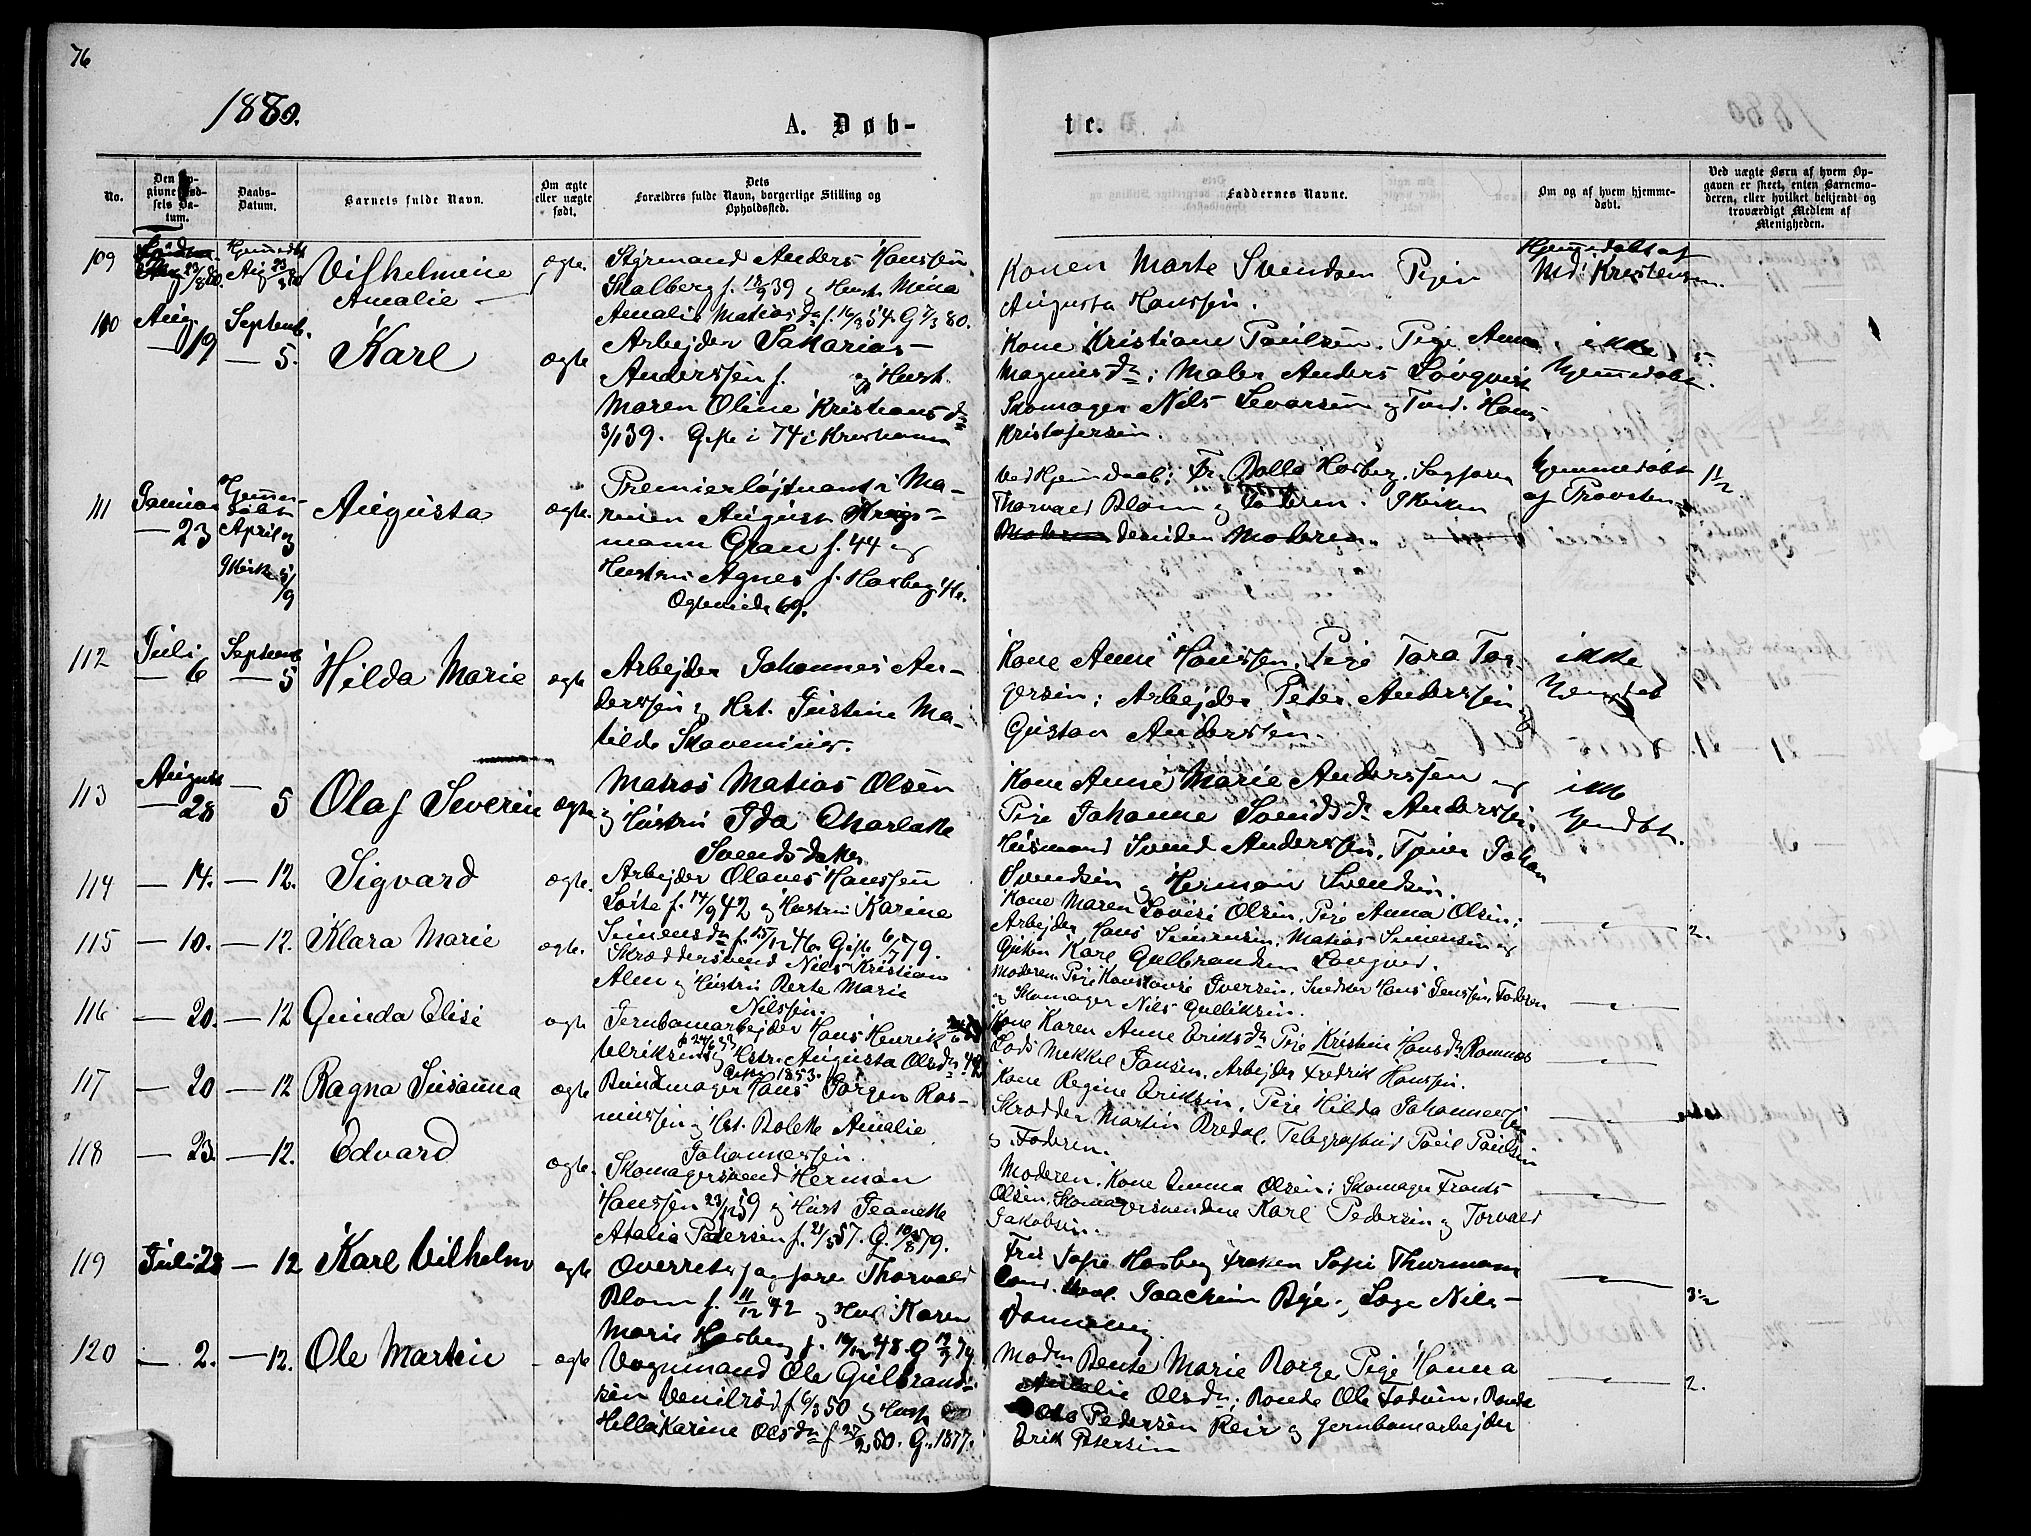 76
1880.
A. Døb-
te.
No.
Den Op-
givne Fød-
sels Da-
tum.
Daabs-
Datum.
Barnets fulde Navn.
Om ægte
eller uægte
født.
Dets
Forældres fulde Navn, borgerlige Stilling og
Opholdssted.
Faddernes Navne.
Om og af hvem hjemme-
døbt.
Ved uægte Børn af hvem Op-
gaven er skeet, enten Barnemo-
deren, eller hvilket bekjendt og
troværdigt Medlem af
Menigheden.
109
Hjemmedøbt
Aug 23
Vilhelmine
Amalie
ægte.
Styrmand Anders Hanssen
Skalberg f. 18/9 39 og Hust. Mina
Amalie Matiasda f. 16/3 54. G 7/3 80.
Konen Marte Svendsen Pigen
Augusta Hanssen.
Hjemmedøbt af
Md: Kristensen.
110
Aug.
19
Septemb.
— 5.
Karl
ægte
Arbejder Sakarias
Anderssen f. og Hust.
Maren Oline Kristians dr
3/1 39. Gifte i 74 i Kristiania
Kone Kristiane Paulsen. Pige Anna
Magnus dr; Maler Anders Lövqvist
Skomager Nils Sevarsen og Tømd. Hans
Kristofersen.
ikke
hjemmedøbt.
111
Januar
— 23
Hjemme-
døbt
April 3
Kirke 5/9
Augusta
ægte.
Premierløjtnant i Ma-
rinen August Krieg-
mann Gran f. 44 og
Hustru Agnes f. Hasberg. 46.
Ægteviede 69.
Ved Hjemmedaab: Fr. Bolla Hasberg. Sagfører
Thorvald Blom og Faderen. I Kirken
desuden Moderen.
hjemmedøbt
af Provsten
1 1/2.
112
Juli
— 6
Septemb
— 5
Hilda Marie
ægte
Arbejder Johannes An-
derssen og Hst. Justine Ma-
tilde Skavenius.
Kone Anne Hanssen. Pige Tora Tor-
gersen; Arbejder Peter Anderssen og
Gustav Anderssen.
ikke
hjemdøbt
113
August
— 28
— 5
Olaf Severin
ægte
Matros Matias Olsen
og Hustru Ida Charlotte
Svendsdatter
Kone Anne Marie Anderssen og
Pige Johanne Svendsdr Anderssen;
Husmand Svend Anderssen. Tjener Johan
Svendsen og Herman Svendsen.
ikke
hjemdbt.
114
— 14.
— 12.
Sigvard
ægte.
Arbejder Olaves Hanssen
Løite f. 14/9 42 og Hustru Karine
Simensdr f. 15/12 46. Gifte 6/1 79.
Kone Maren Lovise Olsen. Pige Anna Olsen;
Arbejder Hans Simensen, Matias Simensen og
Gutten Karl Gulbrandsen Langved.
2.
115
— 10.
— 12.
Klara Marie
ægte.
Skræddersvend Nils Kristian
Alm og Hustru Berte Marie
Nilssen.
Moderen. Pige Konstanse Iversen. Snedker Hans Jenssen, Faderen
og Skomager Nils Gulliksen.
116
— 20.
— 12
Gunda Elise
ægte
Jernbanarbejder Hans Henrik
Ulriksen og Hstr. Augusta Olsdr. 43
Gifte 1853.
Kone Karen Anne Eriksdr Pige Kristine Hansdr Romnæs
Lods Mekkel Jansen. Arbejder Fredrik Hanssen.
117
— 20
— 12
Ragna Susanna
ægte
Bundtmager Hans Jørgen Ras-
mussen og Hst. Bolette Amalie
Johannessen.
Kone Regine Eriksen. Pige Hilda Johannessen
Skrædder Martin Bredal. Telegrafbud Paul Paulsen
og Faderen.
118
— 23.
— 12.
Edvard
ægte.
Skomagersvend Herman
Hanssen 23/12 59 og Hust Jeanette
Atalia Pedersen f. 21/5 57. G. 10/8 79.
Moderen. Kone Emma Olsen; Skomager Frants
Olsen, Skomagersvendene Karl Pedersen og Torvald
Jakobsen.
119
Juli 28
— 12
Karl Vilhelm
ægte
Overretssagfører Thorvald
Blom f. 11/12 42 og Hust Karen
Marie Hasberg f. 10/12 48. G 19/9 74.
Frue Sofie Hasberg Frøken Sofie Thurmann
Cand. theol. Joachim Bye, Læge Nils
Dannevig.
3 1/2
120
— 2.
— 12.
Ole Martin
ægte
Vognmand Ole Gulbrand-
sen Venilrød f 6/3 50 og Hust
Hella Karine Olsdr f 27/2 50. G. 1877.
Modr Bente Marie Borge Pige Hanna
Amalie Olsdr; Bonde Ole Fadum, Bonde
Ole Pedersen Reir og Jernbanarbejder
Erik Petersen
2.